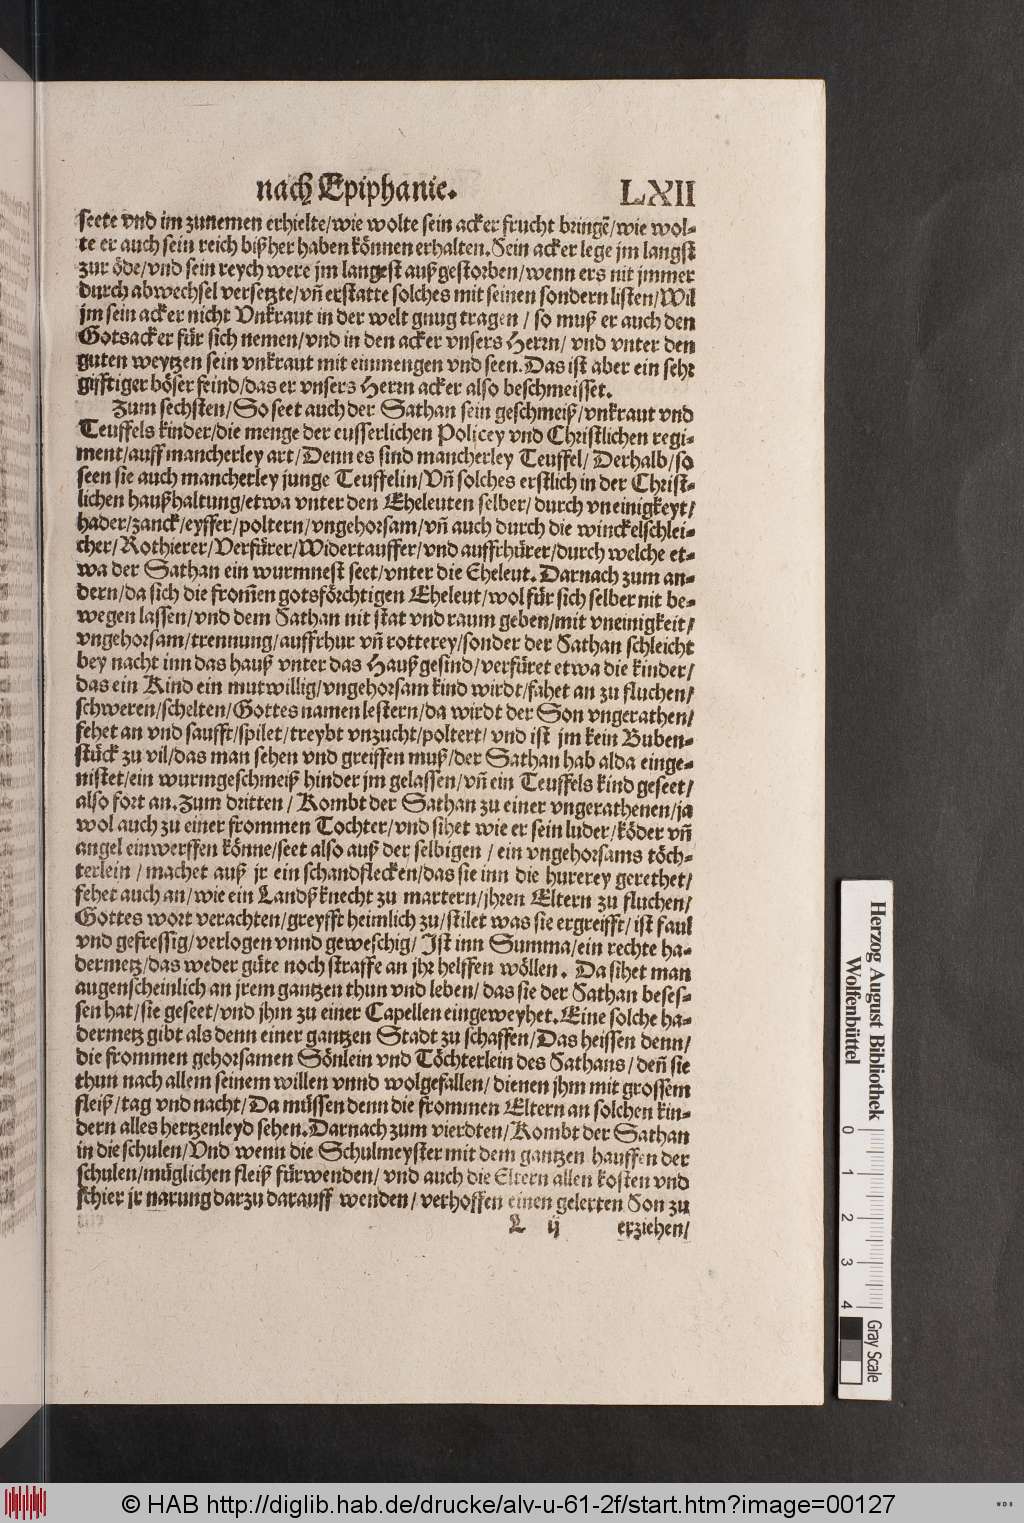 nach Epiphanie. LXII
seete vnd im zunemen erhielte/wie wolte sein acker frucht bringẽ/wie wol-
te er auch sein reich bißher haben können erhalten. Sein acker lege jm langst
zur öde/vnd sein reych were jm langest außgestorben/wenn ers nit jmmer
durch abwechsel versetzte/vñ erstatte solches mit seinen sondern listen/Wil
jm sein acker nicht Vnkraut in der welt gnug tragen / so muß er auch den
Gotsacker für sich nemen/vnd in den acker vnsers Herrn/ vnd vnter den
guten weytzen sein vnkraut mit einmengen vnd seen. Das ist aber ein sehr
gifftiger böser feind/das er vnsers Herrn acker also beschmeisset.
Zum sechsten/So seet auch der Sathan sein geschmeiß/vnkraut vnd
Teuffels kinder/die menge der eusserlichen Policey vnd Christlichen regi-
ment/auff mancherley art/Denn es sind mancherley Teuffel/ Derhalb/so
seen sie auch mancherley junge Teuffelin/Vñ solches erstlich in der Christ-
lichen haußhaltung/etwa vnter den Eheleuten selber/ durch vneinigkeyt/
hader/zanck/eyffer/poltern/vngehorsam/vñ auch durch die winckelschlei-
cher/Rothierer/Verfürer/Widertauffer/vnd auffrhürer/durch welche et-
wa der Sathan ein wurmnest seet/vnter die Eheleut. Darnach zum an-
dern/da sich die from̃en gotsförchtigen Eheleut/wol für sich selber nit be-
wegen lassen/vnd dem Sathan nit stat vnd raum geben/mit vneinigkeit/
vngehorsam/trennung/auffrhur vñ rotterey/sonder der Sathan schleicht
bey nacht inn das hauß vnter das Haußgesind/verfüret etwa die kinder/
das ein Kind ein mutwillig/vngehorsam kind wirdt/fahet an zu fluchen/
schweren/schelten/Gottes namen lestern/da wirdt der Son vngerathen/
fehet an vnd saufft/spilet/treybt vnzucht/poltert/ vnd ist jm kein Buben-
stück zu vil/das man sehen vnd greiffen muß/der Sathan hab alda einge-
nistet/ein wurmgeschmeiß hinder jm gelassen/vñ ein Teuffels kind geseet/
also fort an. Zum dritten/ Kombt der Sathan zu einer vngerathenen/ja
wol auch zu einer frommen Tochter/vnd sihet wie er sein luder/köder vñ
angel einwerffen könne/seet also auß der selbigen / ein vngehorsams töch-
terlein / machet auß jr ein schandflecken/das sie inn die hurerey gerethet/
fehet auch an/wie ein Landßknecht zu martern/jhren Eltern zu fluchen/
Gottes wort verachten/greyfft heimlich zu/stilet was sie ergreifft/ist faul
vnd gefressig/verlogen vnnd geweschig/ Ist inn Summa/ein rechte ha-
dermetz/das weder güte noch straffe an jhr helffen wöllen. Da sihet man
augenscheinlich an jrem gantzen thun vnd leben/ das sie der Sathan beses-
sen hat/sie geseet/vnd jhm zu einer Capellen eingeweyhet. Eine solche ha-
dermetz gibt als denn einer gantzen Stadt zu schaffen/Das heissen denn/
die frommen gehorsamen Sönlein vnd Töchterlein des Sathans/ deñ sie
thun nach allem seinem willen vnnd wolgefallen/ dienen jhm mit grossem
fleiß/tag vnd nacht/Da müssen denn die frommen Eltern an solchen kin-
dern alles hertzenleyd sehen. Darnach zum vierdten/Kombt der Sathan
in die schulen/Vnd wenn die Schulmeyster mit dem gantzen hauffen der
schulen/müglichen fleiß fürwenden/ vnd auch die Eltern allen kosten vnd
schier jr narung darzu darauff wenden/ verhoffen einen gelerten Son zu
L ij erziehen/
Herzog August Bibliothek
Wolfenbüttel
0 1 2 3 4
Gray Scale
© HAB http://diglib.hab.de/drucke/alv-u-61-2f/start.htm?image=00127